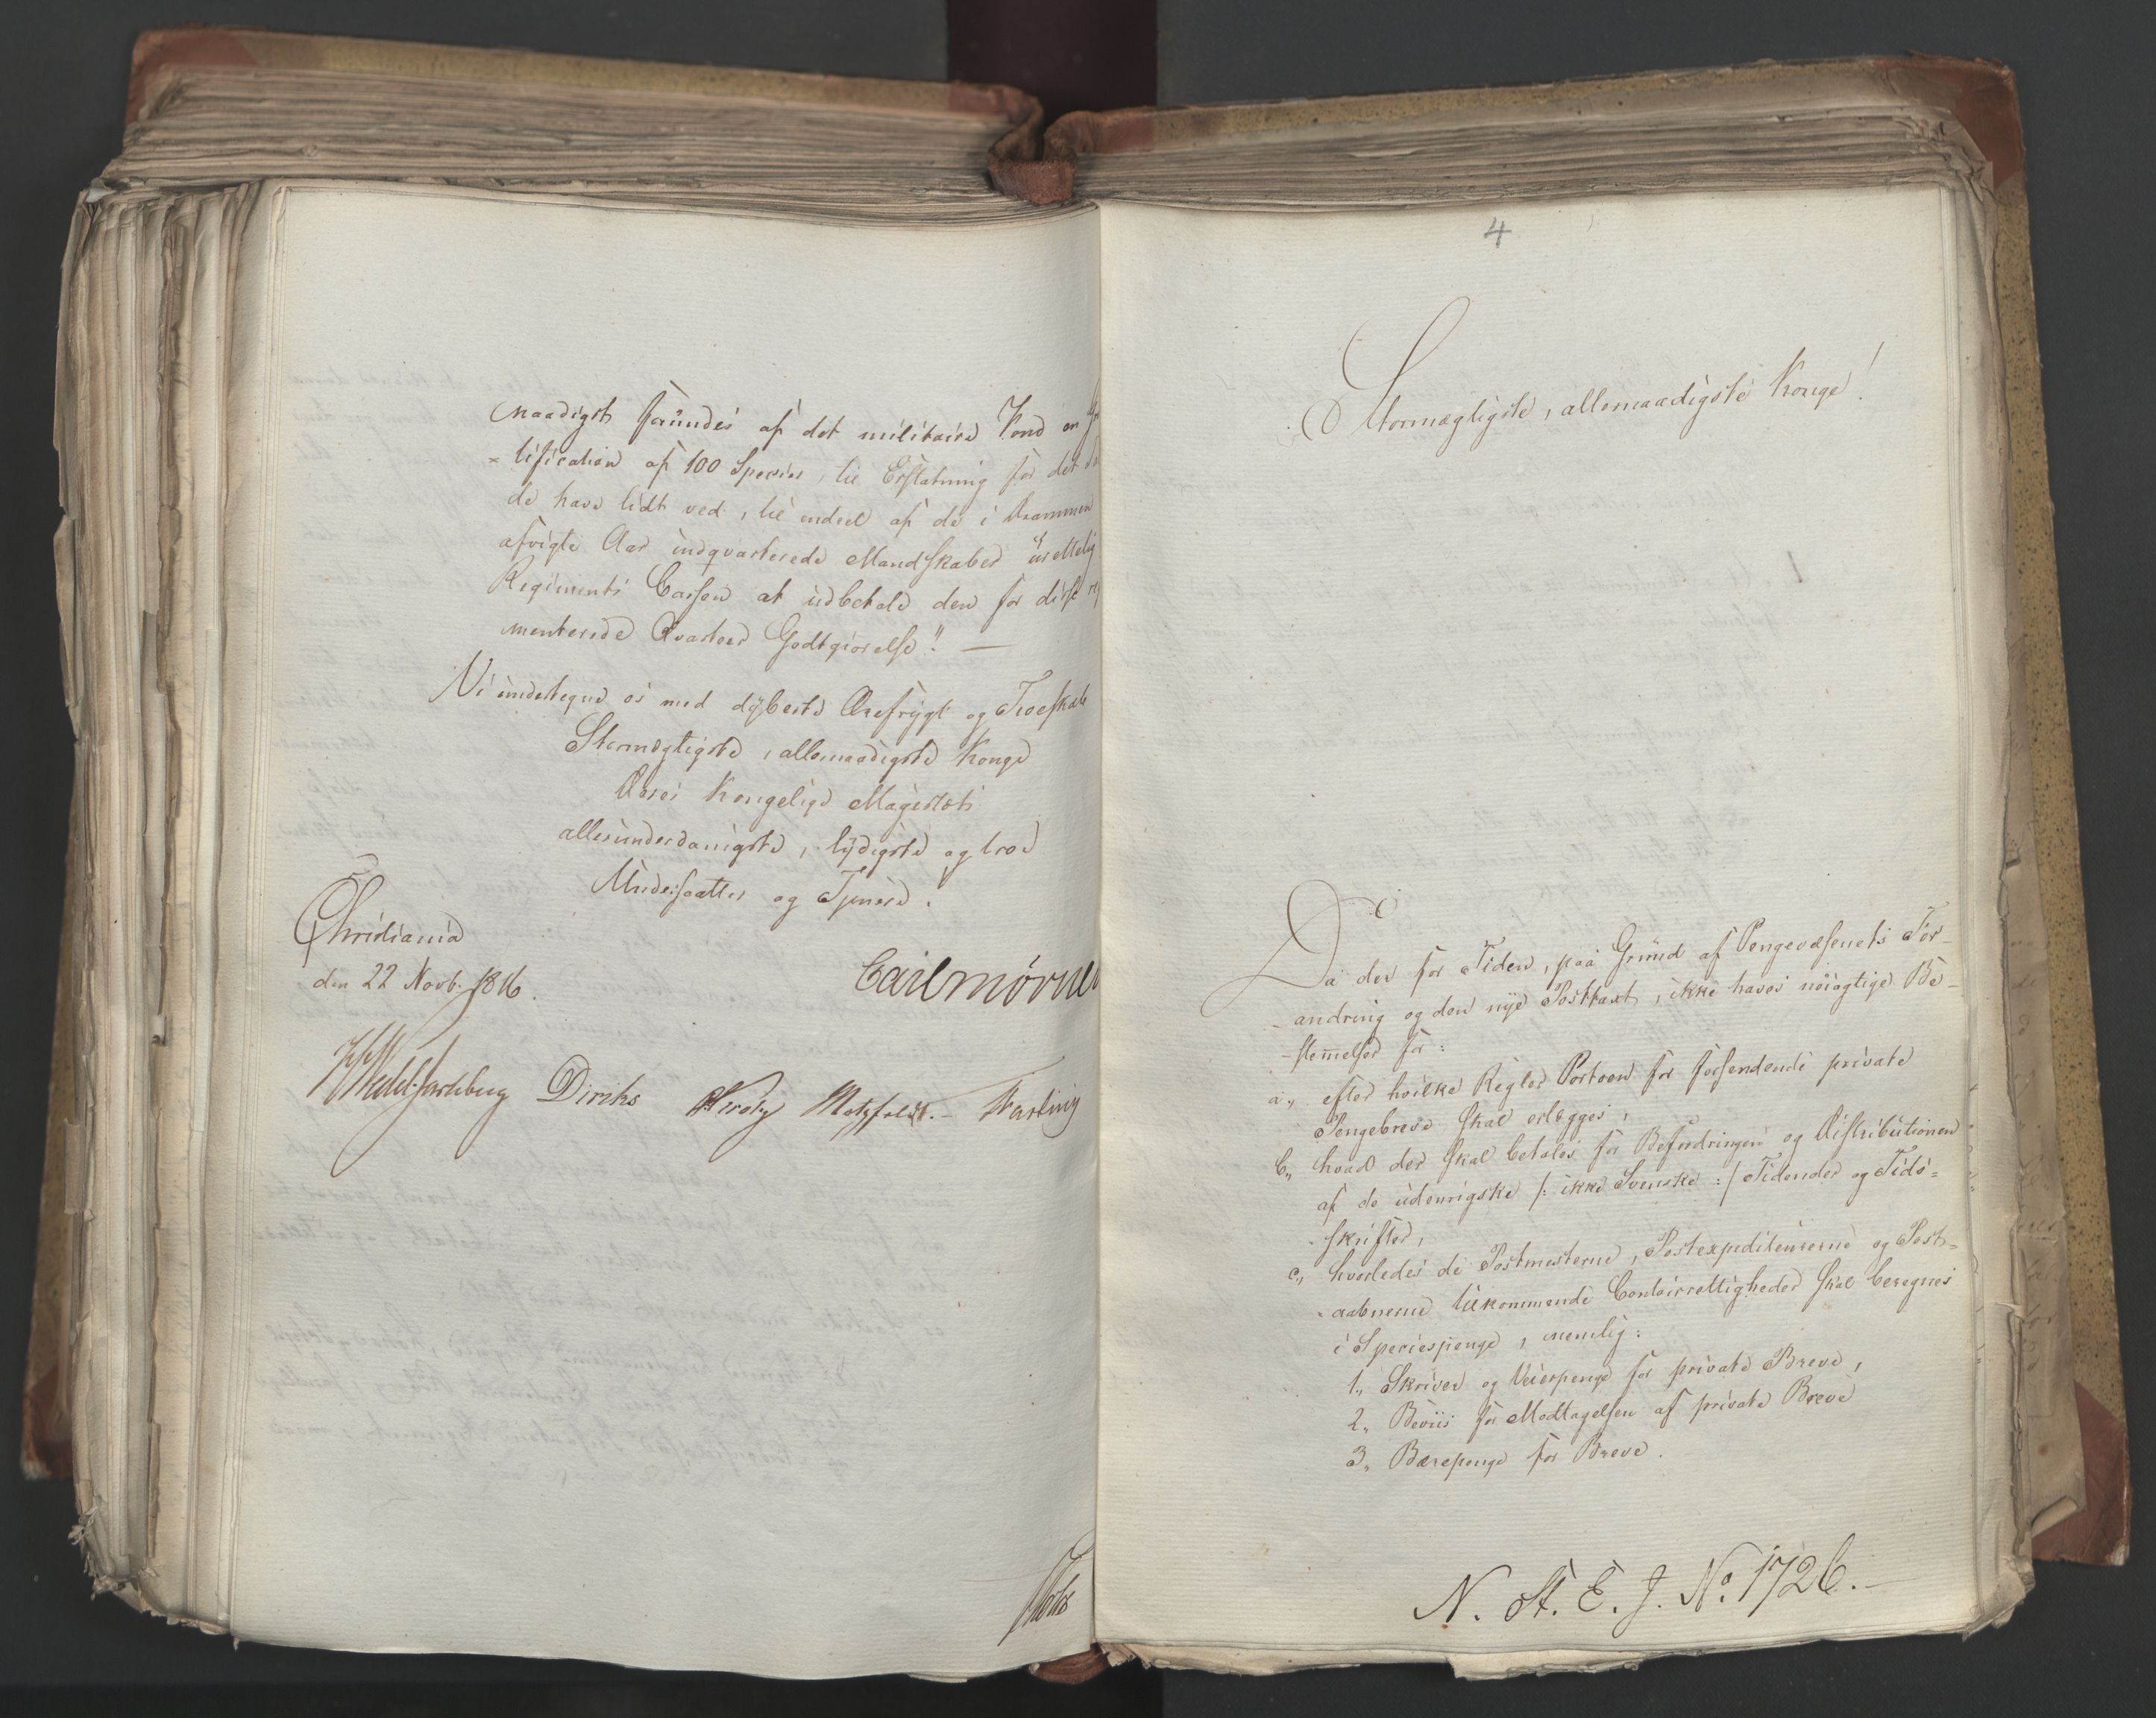 naadigst faünder af det militaire Fond en
tification af 100 Species, til Erstatning for det
de have lidt ved, til endeel af de i Drammen
afvigte Aar indqvarterede Mandskaber
Regiments Cassen at üdbetale den for disse
menterede Qvarteer Godtgiørelse". —
Vi undertegne os med dÿbeste Ærefrÿgt og Troeskab
Stormægtigste, allernaadigste Konge
Deres Kongelige Majestæts
allerunderdanigste, lÿdigste og troe
Undersaatter og Tjenere.
Christiania
den 22 Novb. 1816.
Carl Mörner
Wedel Jarlsberg Diriks Krohg Motzfeldt. - Fasting
4
Stormægtigste, allernaadigste Konge!
Da der for Tiden, paa Gründ af Pengevæsenets For-
-andring og den nÿe Posttaxt, ikke haves nöiagtige Be-
-stem̄elser for:
a„ efter hvilke Regler Portoen for forsendende private
Pengebreve skal erlægges,
b„ hvad der skal betales for Befordringen og Distributionen
af de udenrigske /: ikke Svenske :/ Tidender og Tids-
-skrifter,
c„ hvorledes de Postmesterne, Postexpediteurerne og Post-
-aabnerne tilkommende Contoirrettigheder skal beregnes
i Speciespenge, nemlig:
1„ Skriver og Veierpenge for private Breve,
2„ Beviis for Modtagelsen af private Breve
3„ Bærepenge for Breve.
N. St. E. J. No. 1726. -